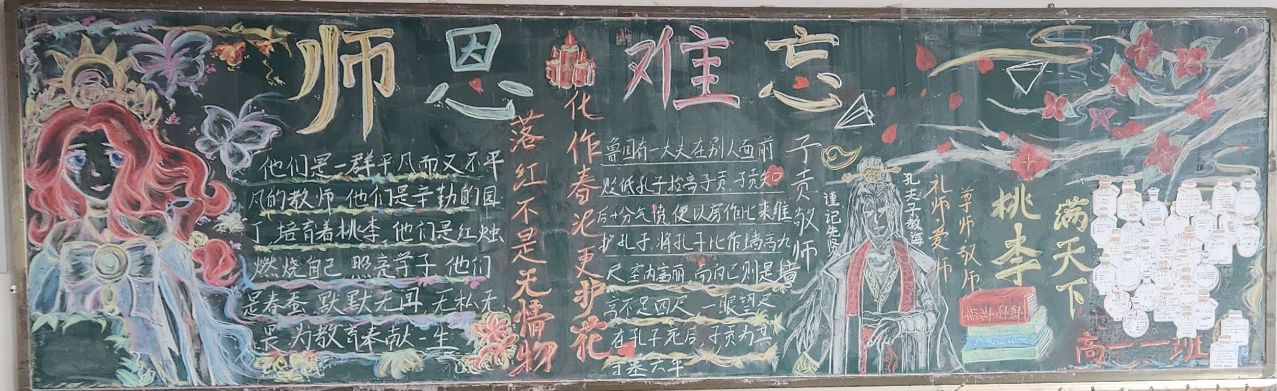 师恩难忘
他们是一群平凡而又不平
凡的教师 他们是辛勤的园
丁,培育者桃李,他们是红烛
燃烧自己 照亮学子 他们
是春蚕,默默无闻,无私无
畏 为教育奉献一生
落红不是无情物
化作春泥更护花
鲁国有一大夫在别人面前
贬低孔子抬高子贡,子贡知
后十分气愤,便以房作比来维
护孔子,将孔子比作墙高九
尺 室内富丽,而自己则是墙
高不足四尺,一眼望尽
在孔子死后,子贡为其
守墓六年
子贡敬师
谨记先贤
孔夫子教诲
礼师爱师
尊师敬师
桃李
满天下
高一一班